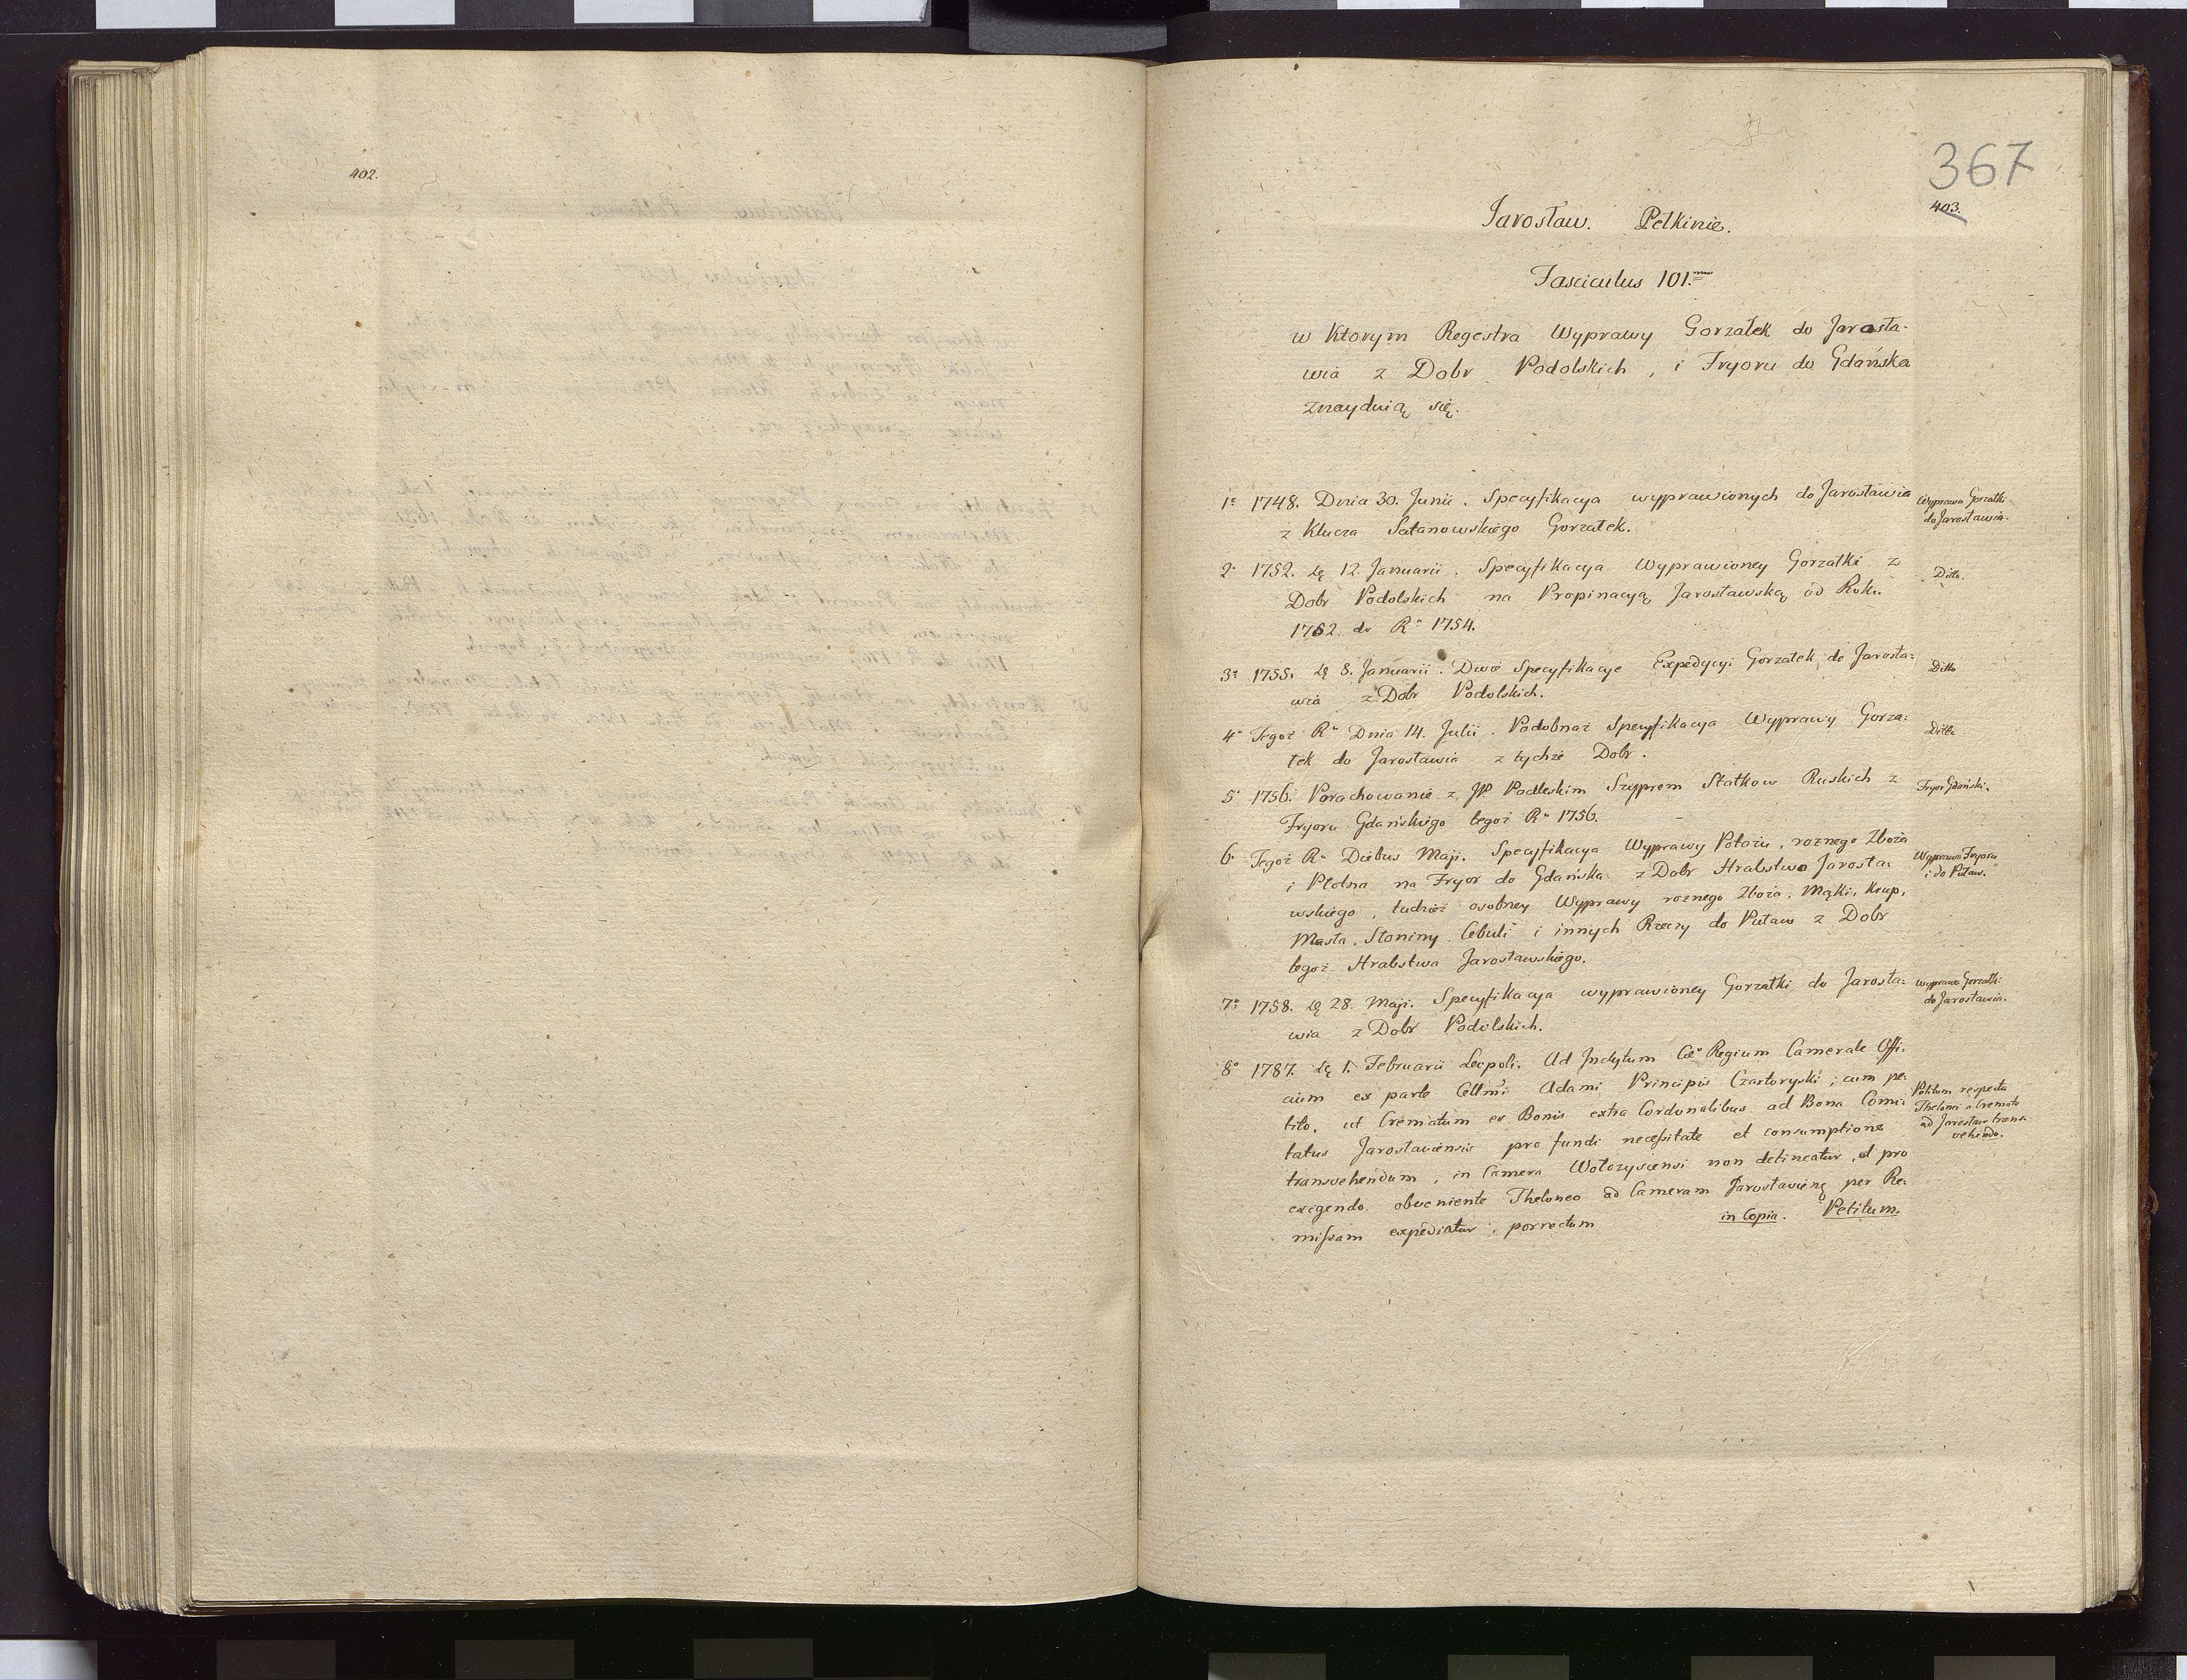 402.
367
403.
Jarosław. Pełkinie.
Fasciculus 101.mus
w Ktorym Regestra Wyprawy Gorzałek do Jarosła-
wia z Dobr Podolskich, i Fryoru do Gdańska
znayduią się.
1° 1748. Dnia 30. Junii. Specyfikacya wyprawionych do Jarosławia
z Klucza Satanowskiego Gorzałek.
Wyprawa Gorzałki
do Jarosławia.
2° 1752. dę 12. Januarii. Specyfikacya Wyprawioney Gorzałki z
Dobr Podolskich na Propinacyą Jarosławską od Roku
1752. do R° 1754.
Ditto.
3° 1755. dę 8. Januarii. Dwie Specyfikacye Expedycyi Gorzałek do Jarosła:
wia z Dobr Podolskich.
Ditto
4° Tegoż R° Dnia 14. Julii. Podobnaż Specyfikacya Wyprawy Gorza:
łek do Jarosławia z tychże Dobr.
Ditto
5° 1756. Porachowanie z JP. Podleskim Szyprem Statkow Ruskich z
Fryoru Gdańskiego tegoż R° 1756.
Fryor Gdański.
6° Tegoż R° Diebus Maji. Specyfikacya Wyprawy Potażu, roznego Zboża
i Płotna na Fryor do Gdańska z Dobr Hrabstwa Jarosła:
wskiego, tudzież osobney Wyprawy roznego Zboża, Mąki, Krup,
Masła, Słoniny, Cebuli i innych Rzeczy do Puław z Dobr
tegoż Hrabstwa Jarosławskiego.
Wyprawa Fryoru
i do Puław.
7° 1758. dę 28. Maji. Specyfikacya wyprawioney Gorzałki do Jarosła:
wia z Dobr Podolskich.
Wyprawa Gorzałki
do Jarosławia.
8° 1787. dę 1. Februarii Leopoli. Ad Inclytum Cæ° Regium Camerale Offi:
cium ex parte Cellmi Adami Principis Czartoryski; cum pe:
tito, ut Crematum ex Bonis extra Cordonalibus ad Bona Comi:
tatus Jaroslaviensis pro fundi necessitate et consumptione
transvehendum, in Camera Wołoczyscensi non detineatur, et pro
exigendo obveniente Theloneo ad Cameram Jaroslavienę per Re:
missam expediatur, porrectum in Copia. Petitum.
Petitum respectu
Thelonei a Cremato
ad Jaroslaw trans:
vehendo.